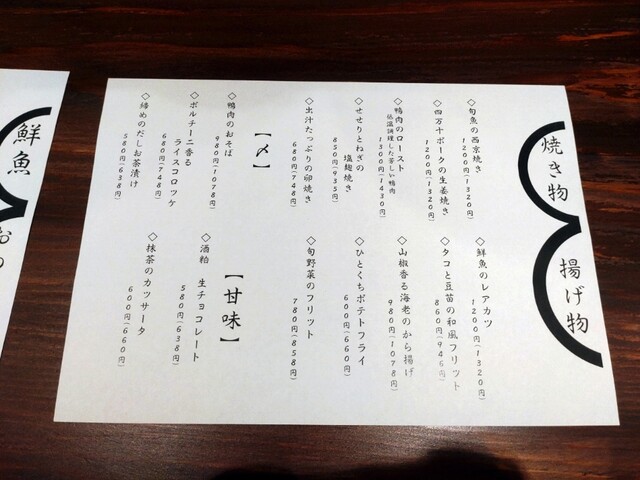 焼き物
◇旬魚の西京焼き
1200円(1320円)
◇四万十ポークの生姜焼き
1200円(1320円)
◇鴨肉のロースト
低温調理した芳しい鴨肉
1300円(1430円)
◇せせりとねぎの
塩麹焼き
850円(935円)
◇出汁たっぷりの卵焼き
680円(748円)
【〆】
◇鴨肉のおそば
980円(1078円)
◇ポルチーニ香る
ライスコロッケ
680円(748円)
◇締めのだしお茶漬け
580円(638円)
揚げ物
◇鮮魚のレアカツ
1200円(1320円)
◇タコと豆苗の和風フリット
860円(946円)
◇山椒香る海老のから揚げ
980円(1078円)
◇ひとくちポテトフライ
600円(660円)
◇旬野菜のフリット
780円(858円)
【甘味】
◇酒粕 生チョコレート
580円(638円)
◇抹茶のカッサータ
600円(660円)
鮮魚